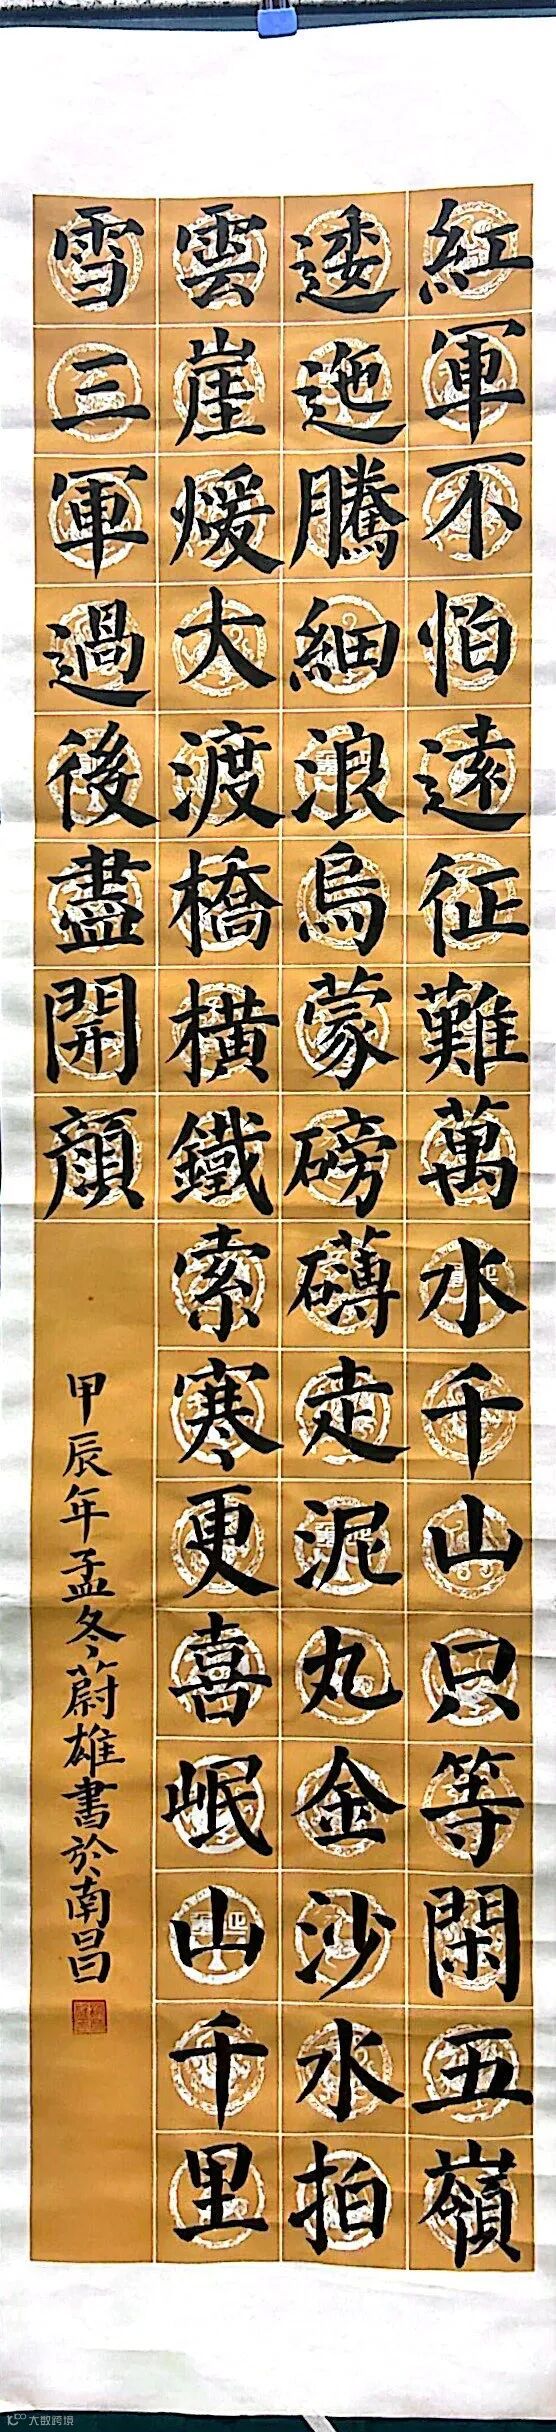 紅軍不怕遠征難萬水千山只等閑五嶺
逶迤騰細浪烏蒙磅礴走泥丸金沙水拍
雲崖煖大渡橋橫鐵索寒更喜岷山千里
雪三軍過後盡開顏
甲辰年孟冬蔚雄書於南昌
大數跨境